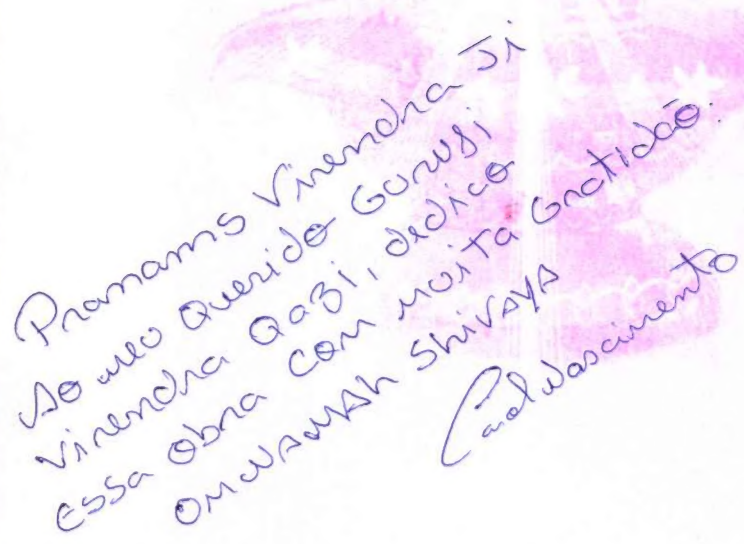 Pranams Virendra Ji
Ao meo Querido Guruji
Virendra Qazi, dedico
essa obra com muita Gratidão.
OM NAMAH SHIVAYA
Carol Nascimento